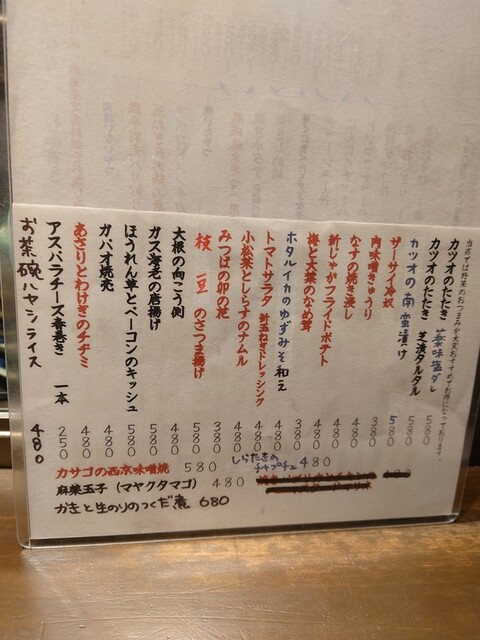 当店では野菜のおつまみが大変おすすめでお得になっております。
カツオのたたき 薬味塩ダレ 580
カツオのたたき 芝漬タルタル 580
カツオの南蛮漬け 580
ザーサイ冷奴
肉味噌きゅうり 380
なすの焼き浸し 480
新じゃがフライドポテト 480
梅と大葉のなめ茸
ホタルイカのゆずみそ和え 480
トマトサラダ 新玉ねぎドレッシング 480
小松菜としらすのナムル 480
みつばの卯の花 380
枝豆のさつま揚げ 580
大根の向こう側 480
ガス海老の唐揚げ 580
ほうれん草とベーコンのキッシュ 580
ガパオ焼売 480
あさりとわけぎのチヂミ 480
アスパラチーズ春巻き 一本 250
お茶碗ハヤシライス 480
カサゴの西京味噌焼 580
しらたきのチャプチェ 480
麻薬玉子(マヤクタマゴ) 480
かきと生のりのつくだ煮 680